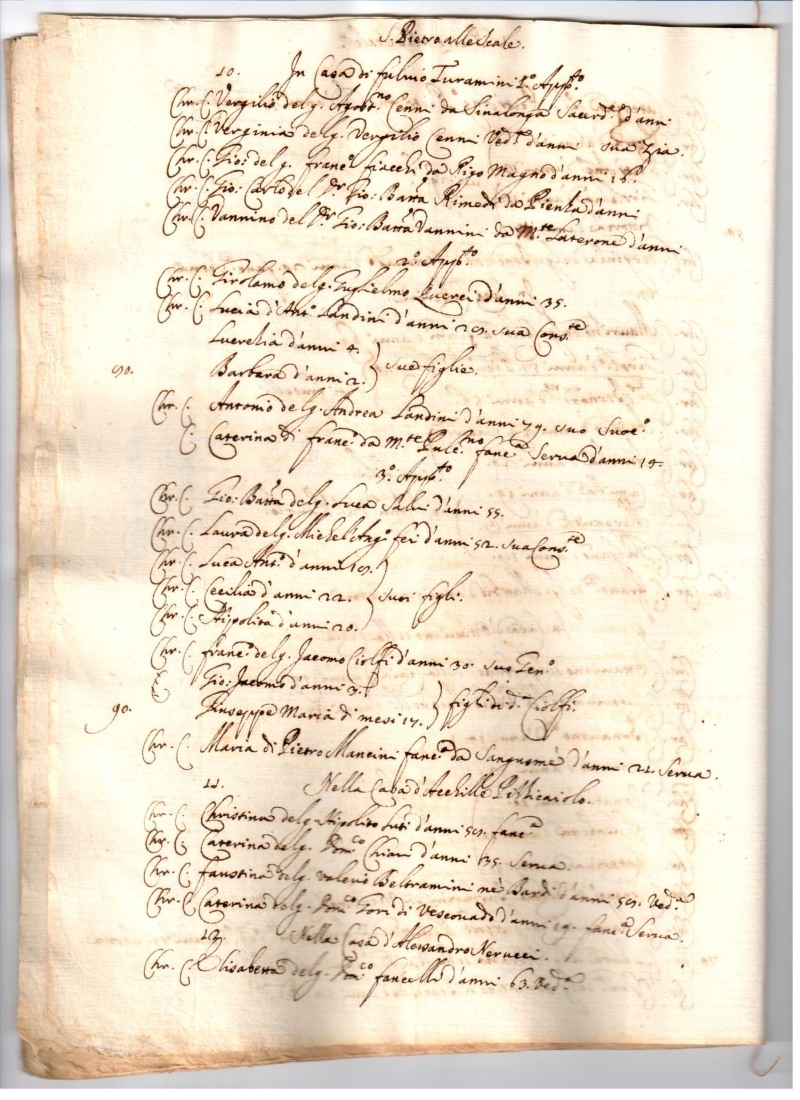 S. Pietro alle Scale.
10. In Casa di fulvio Turamini p.o App.to
Chr. C. Vergilio del q. Agost.no Cenni da Sinalonga Sacerd.e d'anni
Chr. C. Verginia del q. Vergilio Cenni Ved.a d'anni sua Zia.
Chr. C. Gio: del q. franc.o da Rigo Magno d'anni 16.
Chr. C. Gio: Carlo del Sr. Gio: Batta Rimedi da Pienza d'anni
Chr. C. Vannino del Sr. Gio: Batta Vannini da M.te Laterone d'anni
2.o App.to
Chr. C. Girolamo del q. Guglielmo Querci d'anni 35.
Chr. C. Lucia d'Ant.o Landini d'anni 29. sua Cons.te
Lucretia d'anni 4.
90. Barbara d'anni 2. } sue figlie.
Chr. C. Antonio del q. Andrea Landini d'anni 79. suo Suoc.o
C. Caterina di franc.o da M.te Pulc.no fanc.a Serva d'anni 14.
3.o App.to
Chr. C. Gio: Batta del q. Luca Salvi d'anni 55.
Chr. C. Laura del q. Michel Ang.o fei d'anni 52. sua Cons.te
Chr. C. Luca Ant.o d'anni 19.
Chr. C. Cecilia d'anni 22. } suoi figli.
Chr. C. Hipolita d'anni 20.
Chr. C. franc.o del q. Jacomo Ciolfi d'anni 30. suo Gen.o
C. Gio: Jacomo d'anni 3.
90. Giuseppe Maria di mesi 17. } figli di d.o Ciolfi.
Chr. C. Maria di Pietro Mancini fanc.a da d'anni 21. Serva.
11. Nella Casa d'Acchille Pizzicaiolo.
Chr. C. Christina del q. Hipolito Luti d'anni 59. fanc.a
Chr. C. Caterina del q. Dom.co Chiari d'anni 35. Serva.
Chr. C. faustina del q. Valerio Beltramini nè Bardi d'anni 59. Ved.a
Chr. C. Caterina del q. Dom.co Gori di Vescovado d'anni 19. fanc.a Serva.
12. Nella Casa d'Alessandro Nerucci.
Chr. C. Elisabetta del q. Dom.co fancelli d'anni 63. Ved.a